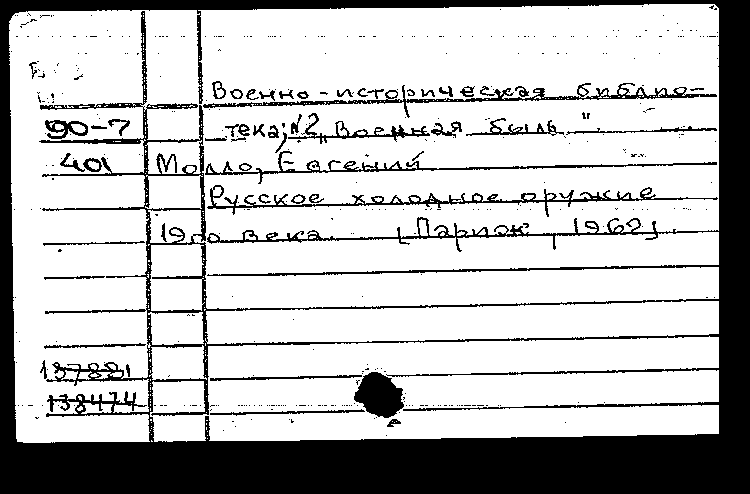 Военно-историческая библио-
90-7 тека; №2 „Военная быль"
401 Молло, Евгений
Русское холодное оружие
19го века. [Париж, 1962].
137881
138474